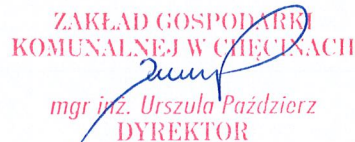 ZAKŁAD GOSPODARKI
KOMUNALNEJ W CHĘCINACH
mgr inż. Urszula Paździerz
DYREKTOR